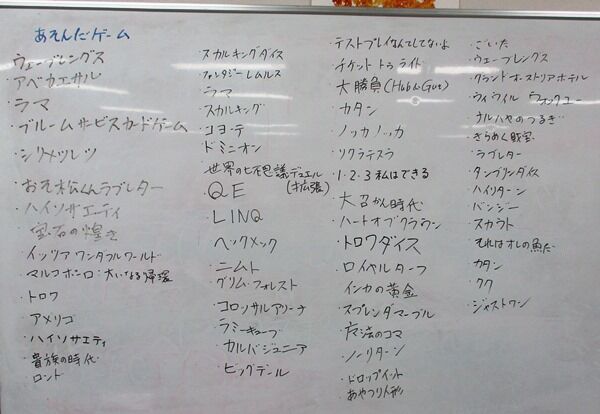 あそんだゲーム
・ウェーブレングス
・アベカエサル
・ラマ
・ブルームサービスカードゲーム
・おそ松くんラブレター
・ハイソサエティ
・宝石の煌き
・イッツアワンダフルワールド
・マルコポーロ:大いなる帰環
・トロワ
・アメリゴ
・ハイソサエティ
・貴族の時代
・ロンド
・スカルキングダイス
・ファンタジーレルムス
・ラマ
・スカルキング
・コヨーテ
・ドミニオン
・世界の七不思議デュエル
(+拡張)
・QE
・LINQ
・ヘックメック
・ニムト
・グリムフォレスト
・コロッサルアリーナ
・ラミーキューブ
・カルバジュニア
・ビッグデール
・テストプレイなんてしてないよ
・チケットトゥライド
・大勝負(High Gut)
・カタン
・ノッカノッカ
・ソクラテスラ
・1・2・3私はできる
・大召かん時代
・ハートオブクラウン
・トロワダイス
・ロイヤルターフ
・インカの黄金
・スプレンダーマーブル
・魔法のコマ
・ノーリターン
・ドロップイット
・あやつり人形
・ごいた
・ウェーブレングス
・グランドオーストリアホテル
・ウィウィルロックユー
・ナルハヤのつるぎ
・きらめく財宝
・ラブレター
・タンブリンダイス
・ハイリターン
・バンジー
・スカウト
・それはオレの魚だ
・カタン
・クク
・ジャストワン